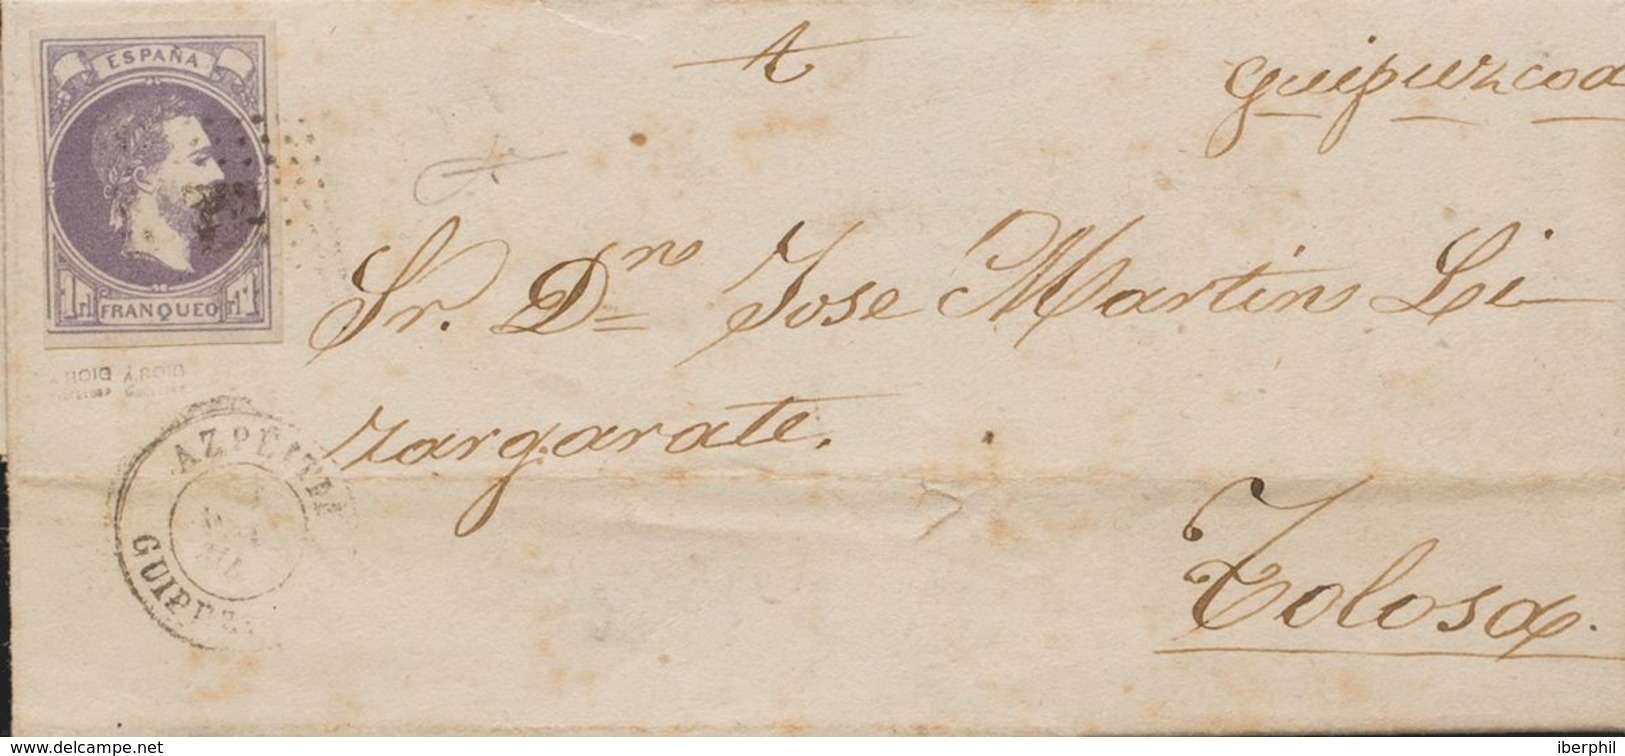 ESPAÑA
1 rl FRANQUEO 1 rl
A
Guipuzcoa
Sr. Dn Jose Martin Li
zargarate.
Tolosa.
A. ROIG A. ROIG
AZPEITIA
GUIPUZ
www.delcampe.net
iberphil